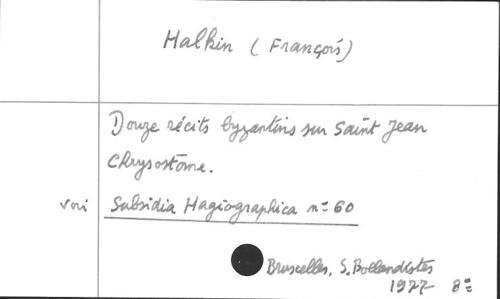 Halkin (François)
Douze récits byzantins sur Saint Jean
Chrysostome.
voir Subsidia Hagiographica n° 60
Bruxelles, S. Bollandistes
1977 8°